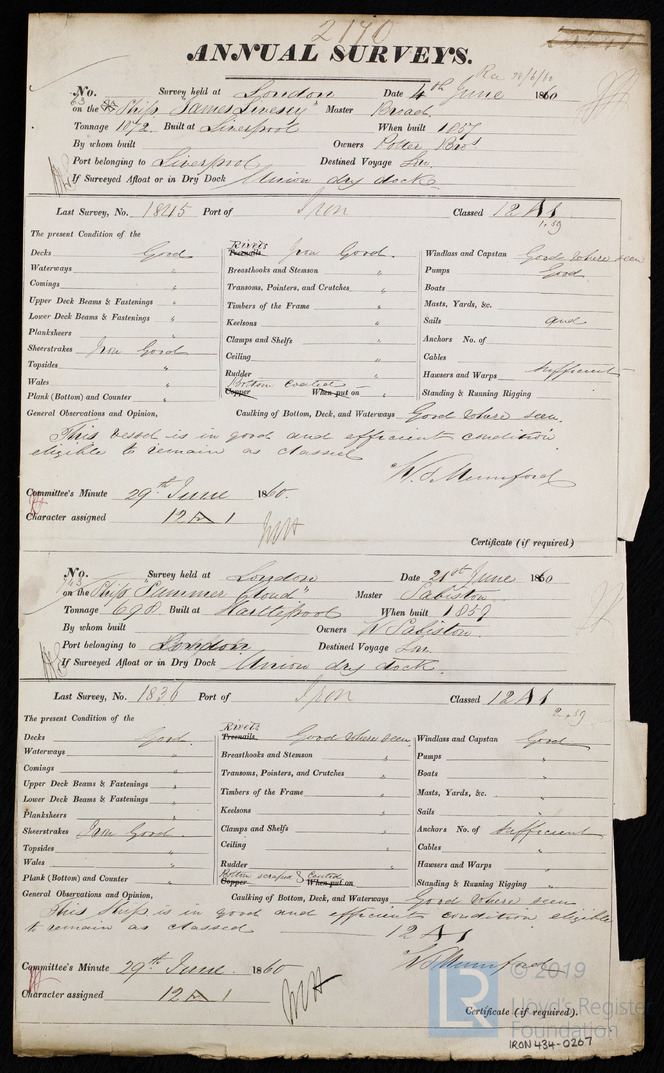 2170
ANNUAL SURVEYS.
Rec 28/6/60
No. 63 Survey held at London Date 4th June 1860
on the Ship "James Livesey" Master Broad
Tonnage 1072 Built at Liverpool When built 1857
By whom built Owners Potter Bros
Port belonging to Liverpool Destined Voyage
If Surveyed Afloat or in Dry Dock Union dry dock
Last Survey, No. 18415 Port of Iron Classed 12 A 1
1.59
The present Condition of the
Rivets
Decks Good Treenails Iron Good. Windlass and Capstan Good where seen
Waterways " Breasthooks and Stemson " Pumps Good
Comings " Transoms, Pointers, and Crutches " Boats
Upper Deck Beams & Fastenings " Timbers of the Frame " Masts, Yards, &c.
Lower Deck Beams & Fastenings " Keelsons " Sails and
Planksheers " Clamps and Shelfs " Anchors No. of
Sheerstrakes Iron Good Ceiling " Cables
Topsides " Rudder " Hawsers and Warps Sufficient
Wales " Bottom Coated
Plank (Bottom) and Counter " Copper When put on Standing & Running Rigging
General Observations and Opinion, Caulking of Bottom, Deck, and Waterways Good where seen.
This vessel is in good and efficient condition
eligible to remain as classed
W. S. Mumford
Committee's Minute 29th June 1860.
Character assigned 12 A 1
Certificate (if required)
No. 743 Survey held at London Date 21st June 1860
on the Ship "Summer Cloud" Master Sabiston
Tonnage 698 Built at Hartlepool When built 1859
By whom built Owners W Sabiston
Port belonging to London Destined Voyage
If Surveyed Afloat or in Dry Dock Union dry dock.
Last Survey, No. 1836 Port of Iron Classed 12 A 1
2.59
The present Condition of the
Rivets
Decks Good. Treenails Good where seen Windlass and Capstan Good
Waterways " Breasthooks and Stemson " Pumps "
Comings " Transoms, Pointers, and Crutches " Boats "
Upper Deck Beams & Fastenings " Timbers of the Frame " Masts, Yards, &c. "
Lower Deck Beams & Fastenings " Keelsons " Sails "
Planksheers " Clamps and Shelfs " Anchors No. of Sufficient
Sheerstrakes Iron Good. Ceiling " Cables "
Topsides " Rudder " Hawsers and Warps "
Wales " Bottom scraped & Coated
Plank (Bottom) and Counter " Copper When put on Standing & Running Rigging "
General Observations and Opinion, Caulking of Bottom, Deck, and Waterways Good where seen
This Ship is in good and efficient condition eligible
to remain as classed 12 A 1
W S Mumford
Committee's Minute 29th June 1860
Character assigned 12 A 1
Certificate (if required).
LR © 2019
Lloyd's Register
Foundation
IRON 434-0267